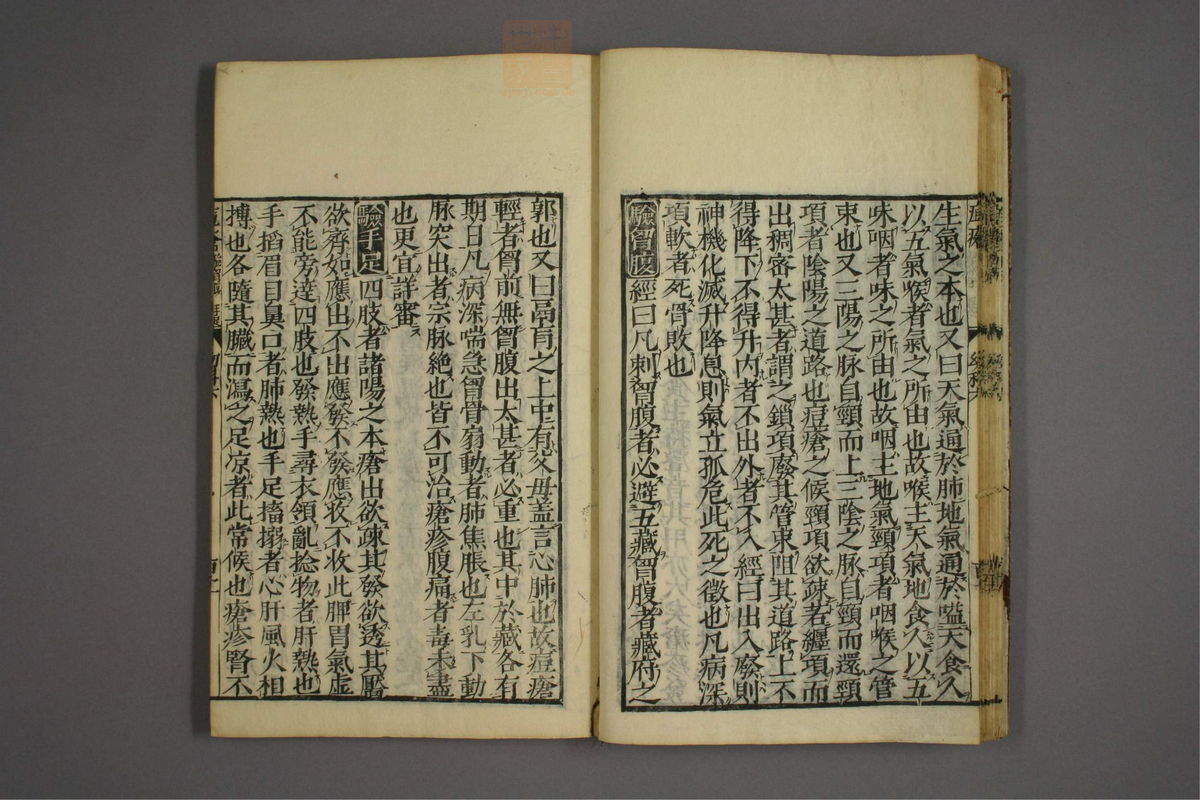 生氣之本也又曰天氣通於肺地氣通於嗌天食人
以五氣喉者氣之所由也故喉主天氣地食人以五
味咽者味之所由也故咽主地氣頸項者咽喉之管
束也又三陽之脉自頸而上三陰之脉自頸而還頸
項者陰陽之道路也痘瘡之候頸項欲疎若纏項而
出稠密太甚者謂之鎖項廢其管束阻其道路上不
得降下不得升内者不出外者不入經曰出入廢則
神機化滅升降息則氣立孤危此死之徵也凡病深
項軟者死骨敗也
驗胷腹經曰凡刺胷腹者必避五藏胷腹者藏府之
郭也又曰鬲肓之上中有父母盖言心肺也故痘瘡
輕者胷前無胷腹出太甚者必重也其中於藏各有
期日凡病深喘急胷骨扇動者肺焦脹也左乳下動
脉突出者宗脉絶也皆不可治瘡疹腹痛者毒未盡
也更宜詳審
驗手足四肢者諸陽之本瘡出欲疎其發欲透其靨
欲齊如應出不出應發不發應收不收此脾胃氣虚
不能旁達四肢也發熱手尋衣領亂捻物者肝熱也
手掐眉目鼻口者肺熱也手足搐搦者心肝風火相
搏也各隨其臟而瀉之足凉者此常候也瘡疹腎不